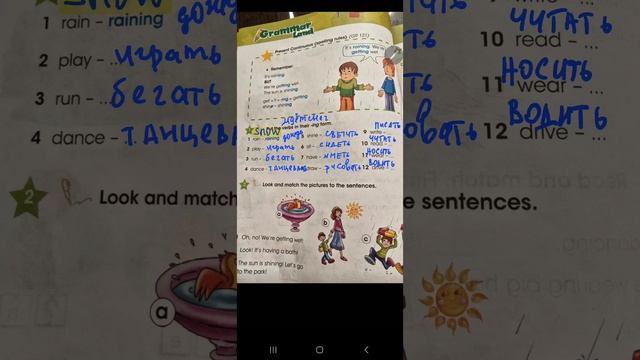 Grammar Land
Present Continuous (spelling rules) (GR 121)
Remember:
It's raining.
BUT
We're getting wet.
The sun is shining.
get + t + ing = getting
It's raining. We're
getting wet.
snow идёт снег
verbs in their -ing form.
1 rain - raining дождь
2 play - ... играть
3 run - ... бегать
4 dance - танцевать
5 shine - светить
6 sit - сидеть
7 have - иметь
8 draw - рисовать
9 write - писать
10 read - ... читать
11 wear - ... носить
12 drive - ... водить
2 Look and match the pictures to the sentences.
a
b
c
Oh, no! We're getting wet!
Look! It's having a bath!
The sun is shining! Let's go
to the park!
1 rain - raining дождь
2 play - ... играть
3 run - ... бегать
4 dance - танцева
2
Look and match
a
читать
10 read - ...
11 wear - ... носить
12 drive - ... водить
e sentences.